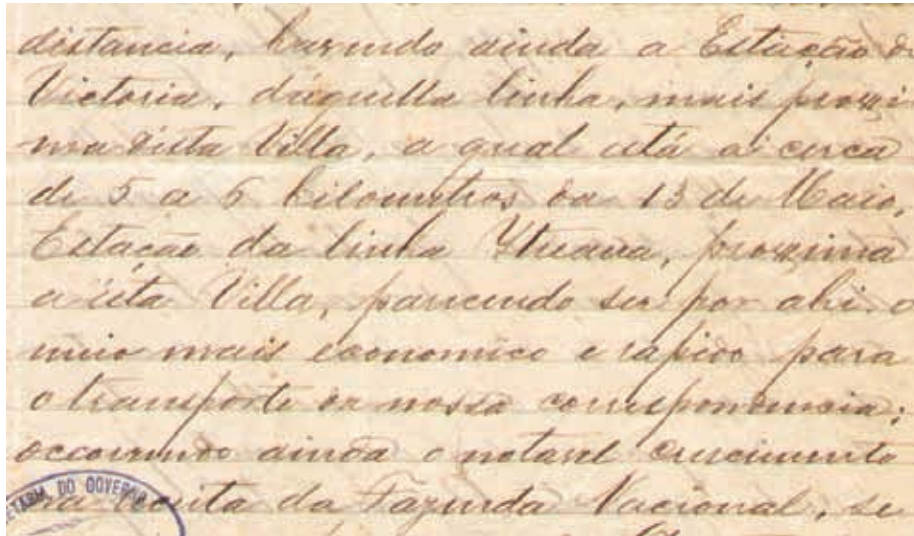 distancia, havendo ainda a Estação d
Victoria, d'aquella linha, mais proxi
ma d'esta Villa, a qual está a cerca
de 5 a 6 kilometros da 13 de Maio,
Estação da linha Ytuana, proxima
a esta Villa, parecendo ser por ahi o
meio mais economico e rapido para
o transporte da nossa correspondencia;
occorrendo ainda o notavel crescimento
da receita da Fazenda Nacional, se
DO GOVERNO